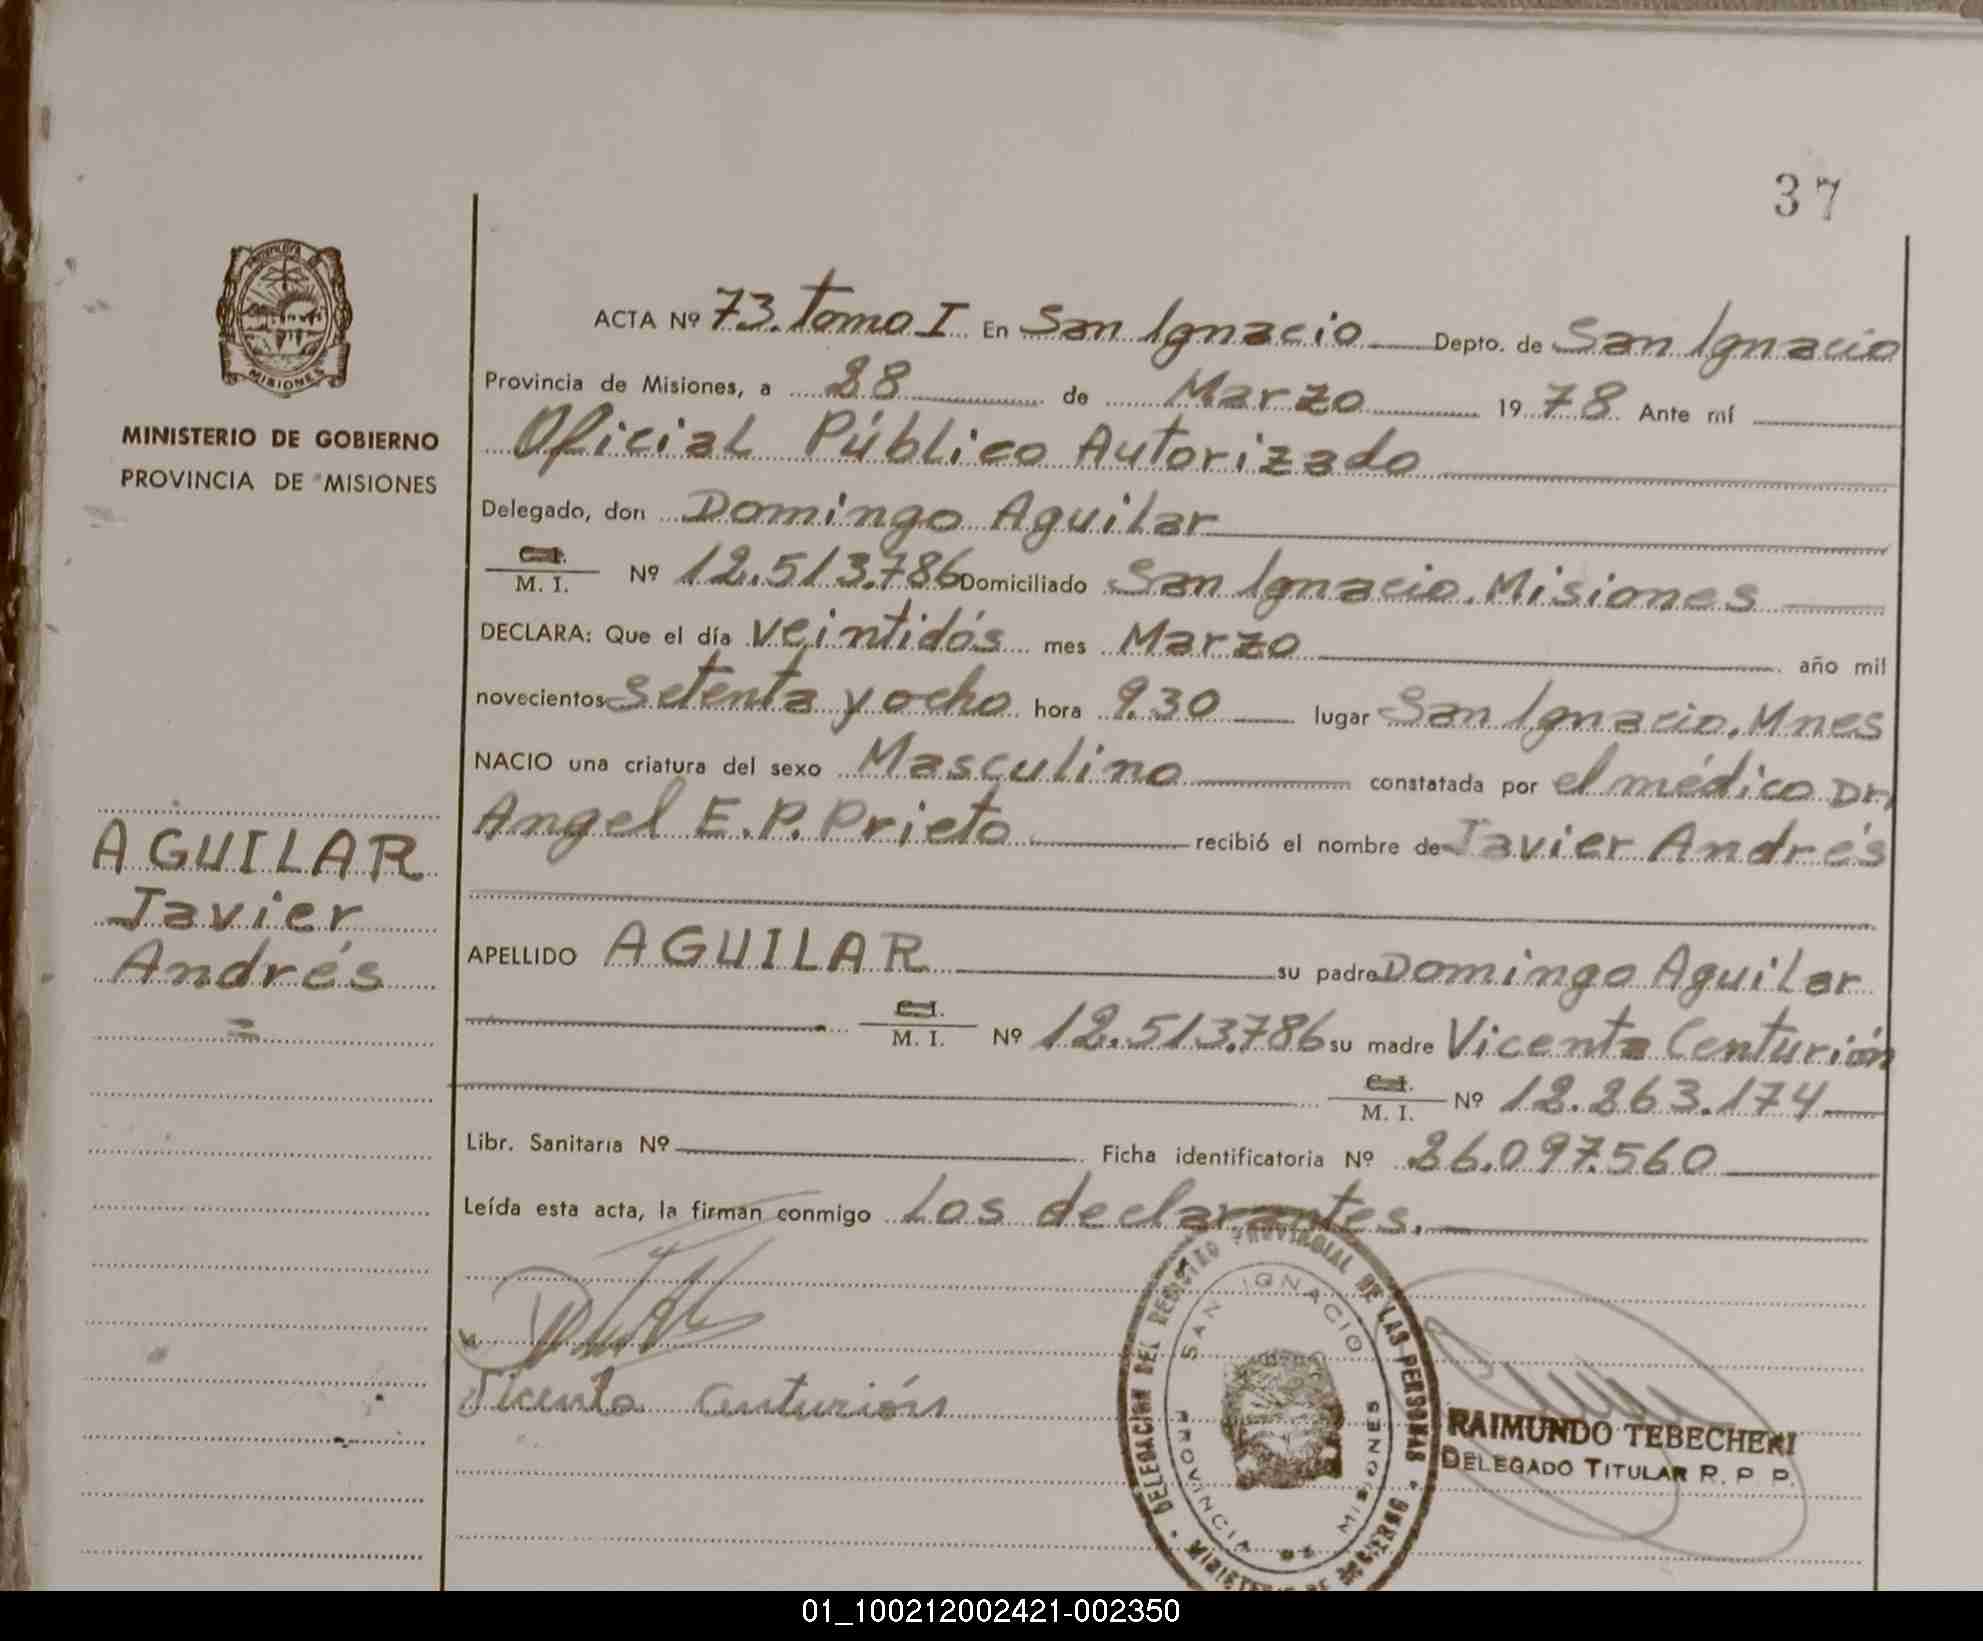 37
MINISTERIO DE GOBIERNO
PROVINCIA DE MISIONES
MISIONES
AGUILAR
Javier
Andrés
=
ACTA Nº 73. tomo I En San Ignacio Depto. de San Ignacio
Provincia de Misiones, a 28 de Marzo 1978 Ante mí
Oficial Público Autorizado
Delegado, don Domingo Aguilar
M. I. Nº 12.513.786 Domiciliado San Ignacio. Misiones
DECLARA: Que el día veintidós mes Marzo año mil
novecientos setenta y ocho hora 9.30 lugar San Ignacio. Mnes
NACIO una criatura del sexo Masculino constatada por el médico Dr.
Angel E. P. Prieto recibió el nombre de Javier Andrés
APELLIDO AGUILAR su padre Domingo Aguilar
M. I. Nº 12.513.786 su madre Vicenta Centurión
M. I. Nº 12.263.174
Libr. Sanitaria Nº Ficha identificatoria Nº 26.097.560
Leída esta acta, la firman conmigo los declarantes.
Vicenta Centurión
DELEGACION DEL REGISTRO PROVINCIAL DE LAS PERSONAS
SAN IGNACIO
PROVINCIA DE MISIONES
MINISTERIO DE GOBIERNO
RAIMUNDO TEBECHERI
DELEGADO TITULAR R. P. P.
01_100212002421-002350